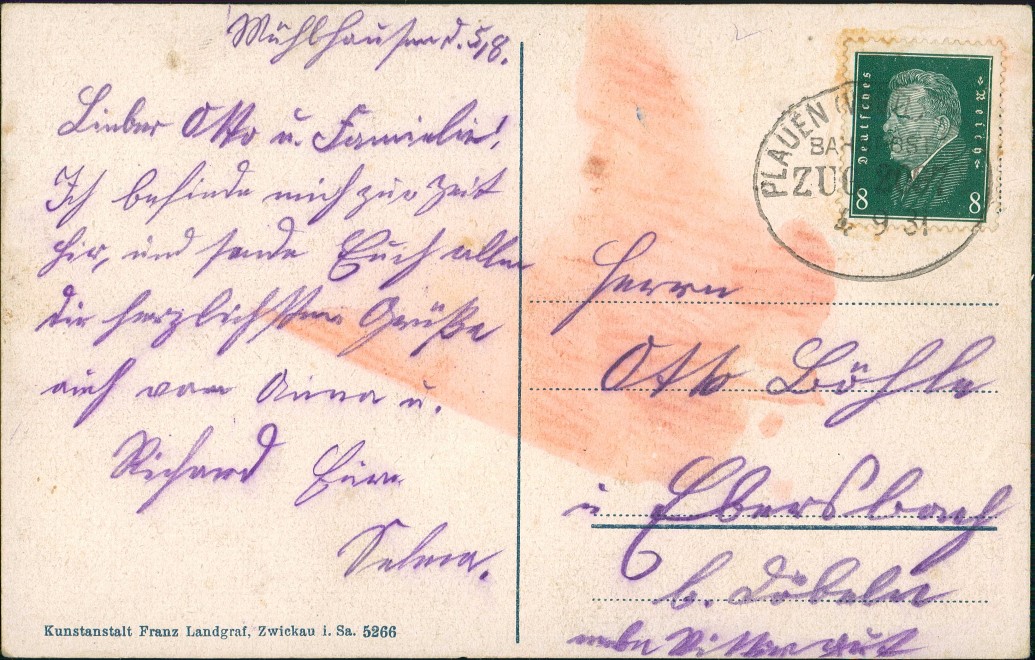 Mühlhausen d. 5/8.
Lieber Otto u. Familie!
Ich befinde mich zur Zeit
hir, und sende Euch allen
die herzlichsten Grüße
auch von Anna u.
Richard Eure
Selma.
Kunstanstalt Franz Landgraf, Zwickau i. Sa. 5266
Deutsches Reich
8 8
PLAUEN
BAHNPOST
ZUG
9 31
Herrn
Otto Böhle
in Ebersbach
b. Döbeln
Rittergut